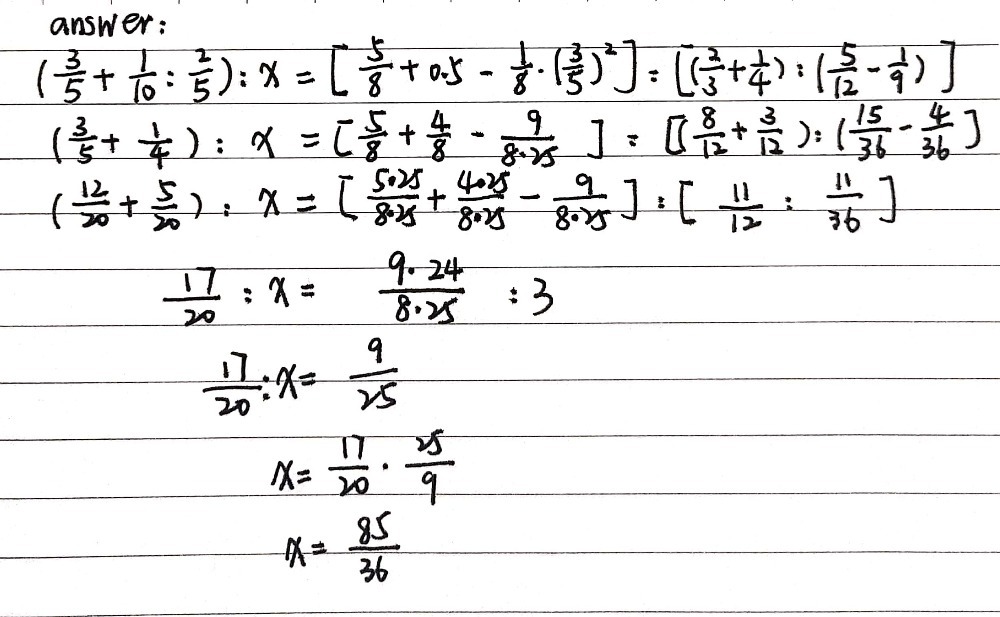 answer:
(3/5 + 1/10 : 2/5) : x = [ 5/8 + 0.5 - 1/8 · (3/5)² ] : [(2/3 + 1/4) : (5/12 - 1/9) ]
(3/5 + 1/4) : x = [ 5/8 + 4/8 - 9/8·25 ] : [( 8/12 + 3/12 ) : ( 15/36 - 4/36 ]
(12/20 + 5/20) : x = [ 5·25/8·25 + 4·25/8·25 - 9/8·25 ] : [ 11/12 : 11/36 ]
17/20 : x = 9·24/8·25 : 3
17/20 : x = 9/25
x = 17/20 · 25/9
x = 85/36